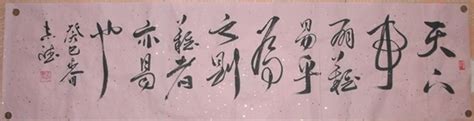 天下
事
有難
易乎
為
之則
難者
亦易
也
癸巳春